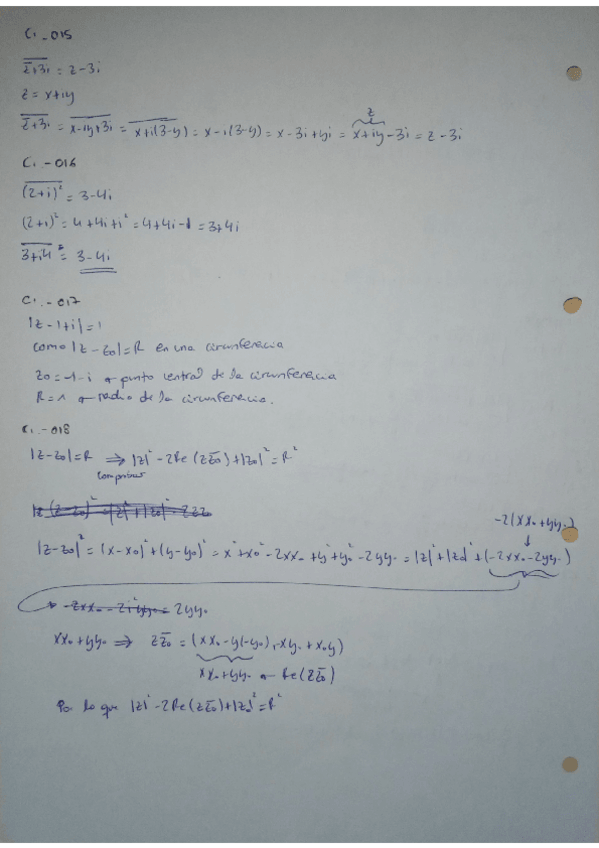 C1_015
\overline{\bar{z}+3i} = z-3i
z = x+iy
\overline{\bar{z}+3i} = \overline{x-iy+3i} = \overline{x+i(3-y)} = x-i(3-y) = x-3i+yi = x+iy-3i = z-3i
z
C1.-016
\overline{(2+i)^2} = 3-4i
(2+i)^2 = 4+4i+i^2 = 4+4i-1 = 3+4i
\overline{3+i4} = 3-4i
C1.-017
|z-1+i|=1
como |z-z0|=R en una circunferencia
z0 = 1-i punto central de la circunferencia
R=1 radio de la circunferencia.
C1.-018
|z-z0|=R ⇒ |z|^2-2Re(z\bar{z0})+|z0|^2=R^2
comprobar
-2(xx0+yy0)
|z-z0|^2 = (x-x0)^2+(y-y0)^2 = x^2+x0^2-2xx0+y^2+y0^2-2yy0 = |z|^2+|z0|^2+(-2xx0-2yy0)
2yy0
xx0+yy0 ⇒ z\bar{z0} = (xx0-y(-y0), -xy0+x0y)
xx0+yy0 Re(z\bar{z0})
Por lo que |z|^2-2Re(z\bar{z0})+|z0|^2=R^2